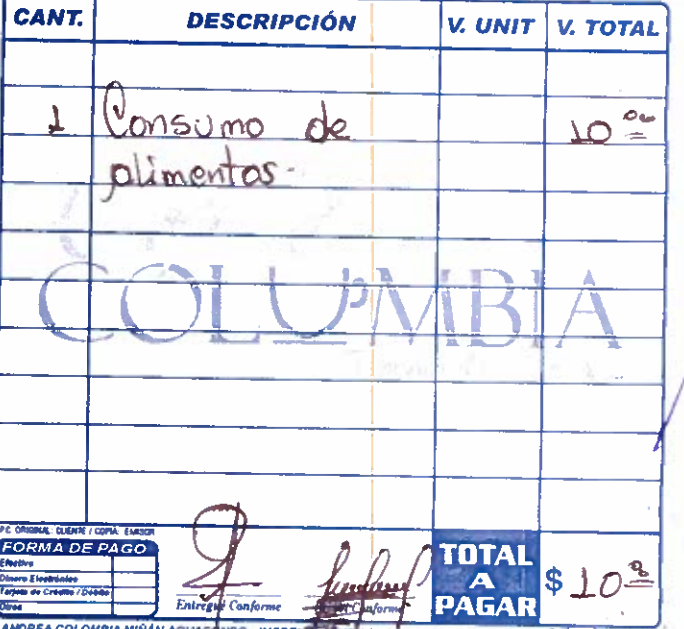 CANT. DESCRIPCIÓN V. UNIT V. TOTAL
1 Consumo de 10 00
alimentos.
COLUMBIA
ORIGINAL: CLIENTE / COPIA: EMISOR
FORMA DE PAGO
Efectivo
Dinero Electrónico
Tarjeta de Crédito / Débito
Otros
Entregué Conforme
Conforme
TOTAL A PAGAR $ 10 00
ANDREA COLOMBIA